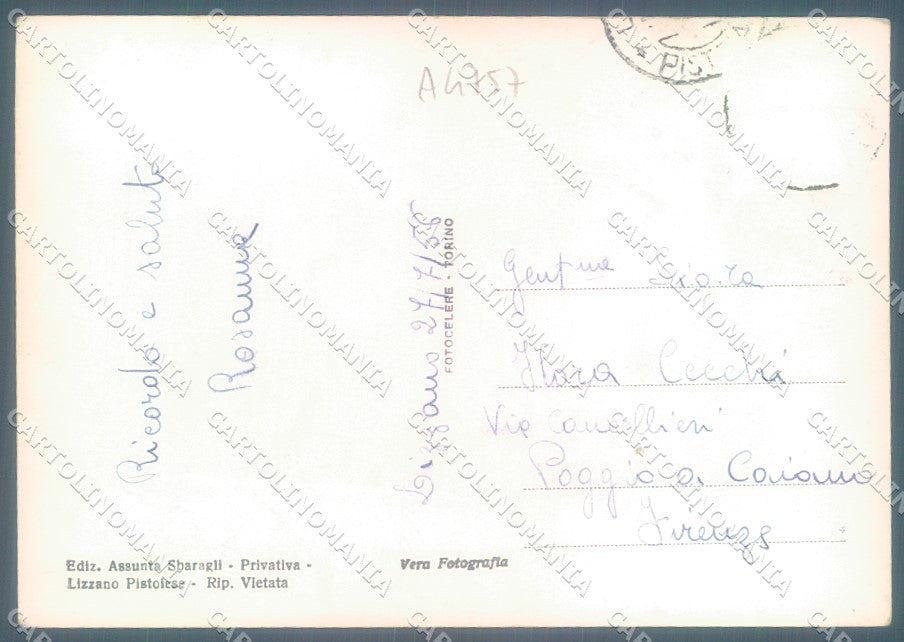 A4757
PIST
Ricordo e saluti
Rosanna
Lizzano 27/7/56
FOTOCELERE - TORINO
Gent.ma Sig.ra
Cecchi
Via Cancellieri
Poggio a Caiano
Firenze
Ediz. Assunta Sbaragli - Privativa -
Lizzano Pistoiese - Rip. Vietata
Vera Fotografia
CARTOLINOMANIA